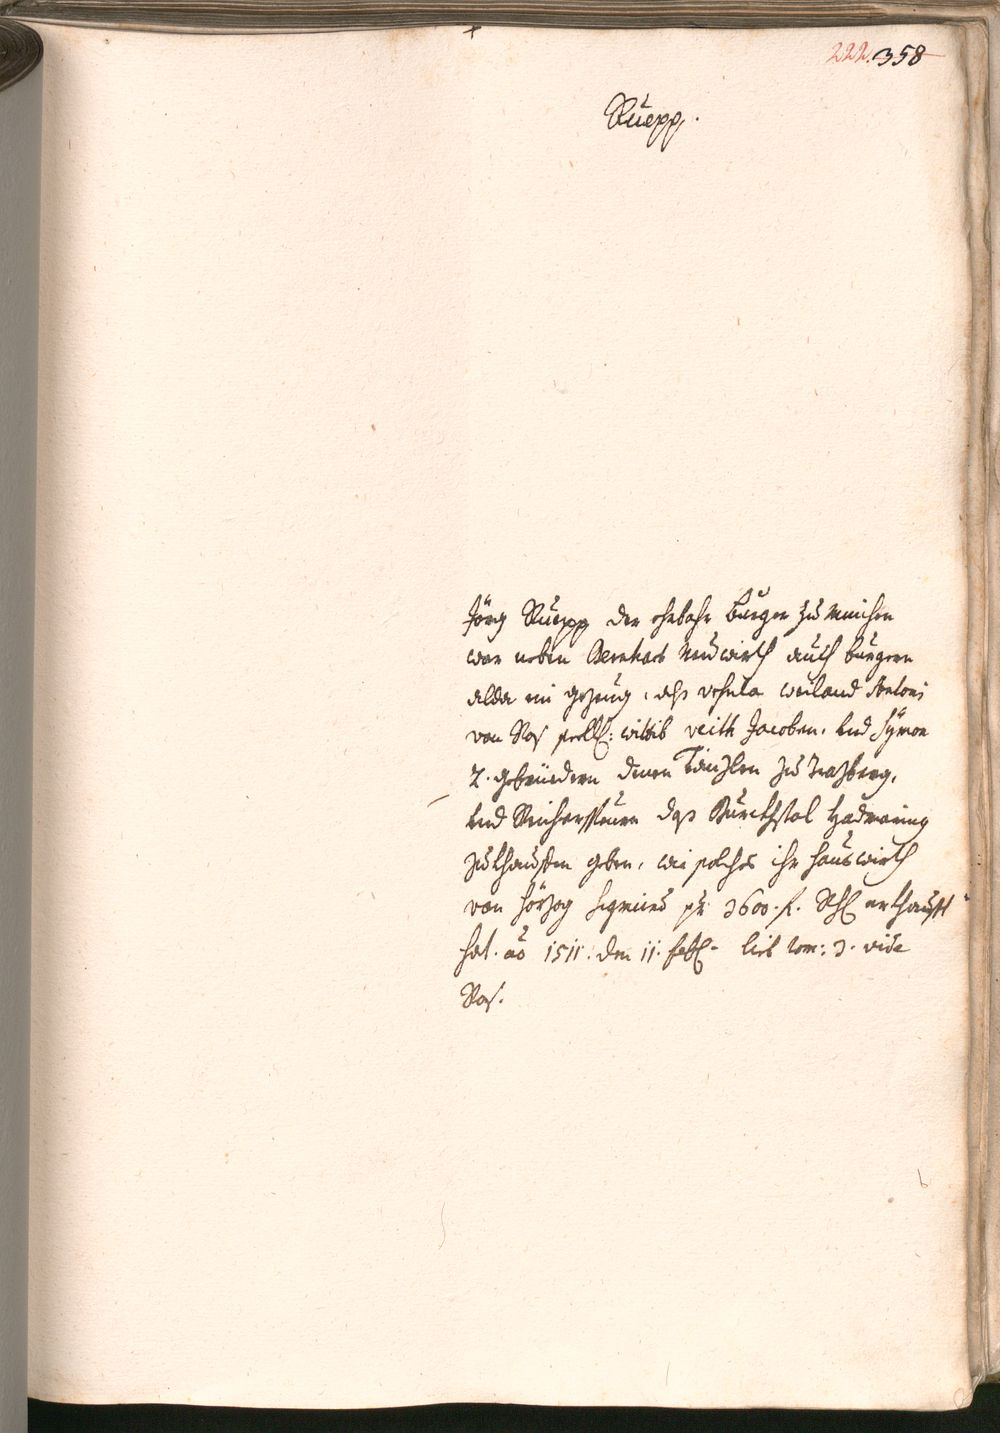 222. 358
Ruepp.
Jörg Ruepp der erbahr Burger zu München
war neben Bernhard Neuwirth auch burgern
alda ein gezeug, alß Vrsula weiland Antoni
von Ros seel: wittib Veith Jacoben, und Symon
2. gebrüedern denen Tänzlen zu Trazberg,
und Reichersbeurn daß Burckhstal
zukhauffen geben, wie solches ihr hauswirth
von Herzog Sigmund pr 3600. f. Rh erkhaufft
hat. ao 1511. den 11. feb. lib tom: 3. vide
Ros.